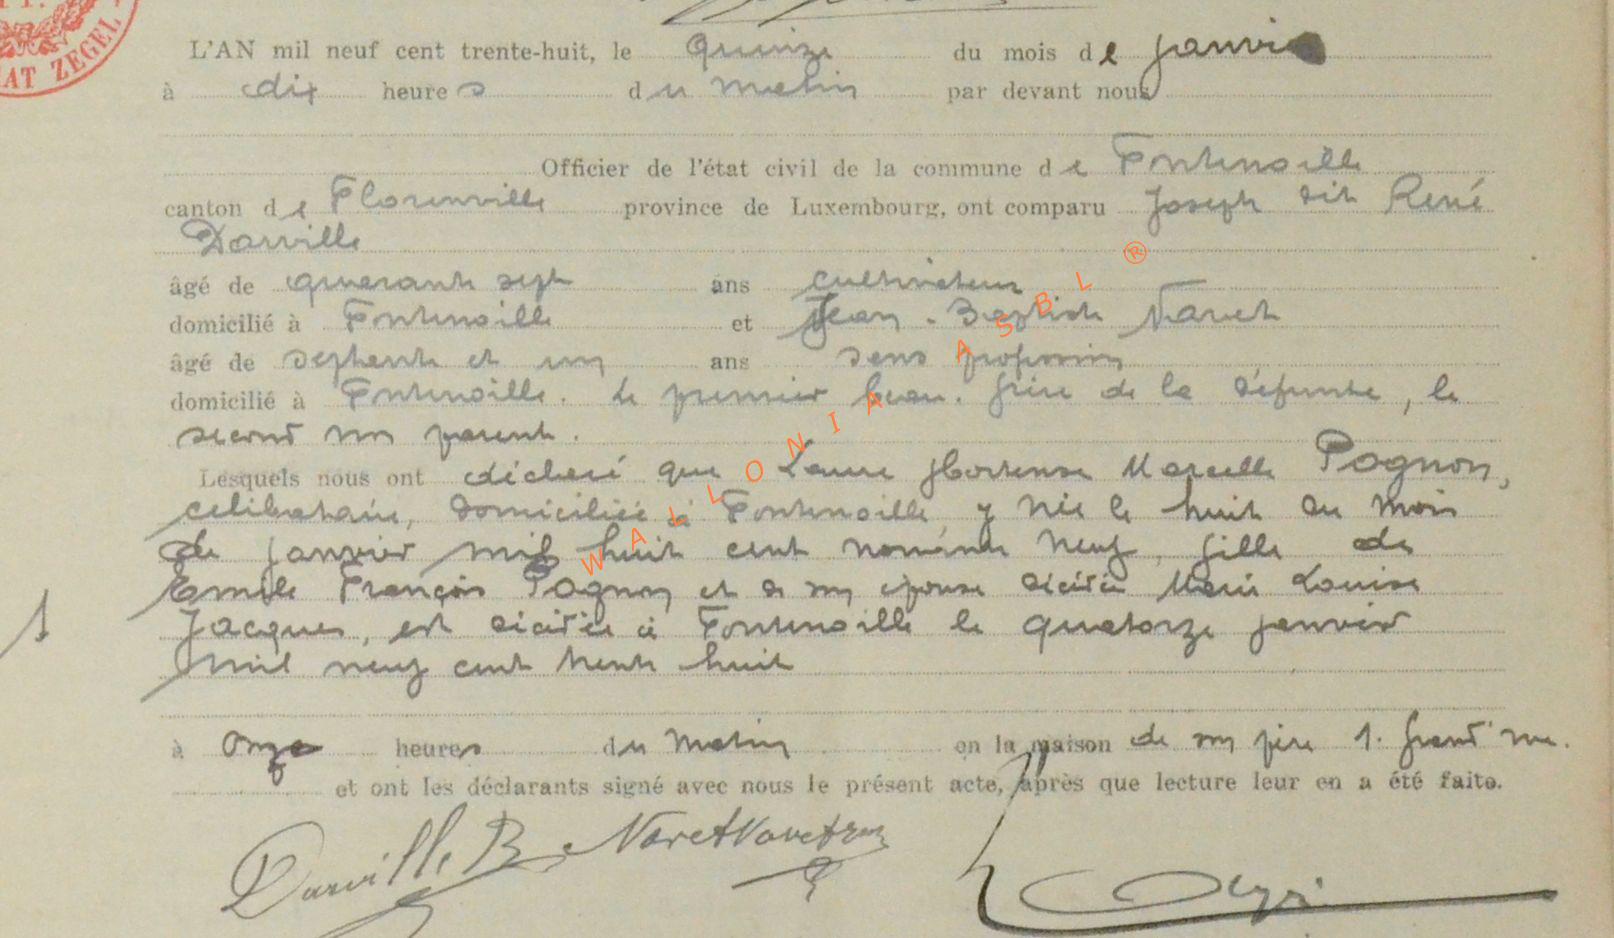 AT ZEGEL
L'AN mil neuf cent trente-huit, le quinze du mois de janvier
à dix heures du matin par devant nous
Officier de l'état civil de la commune de Fontenoille
canton de Florenville province de Luxembourg, ont comparu Joseph dit René
Darville
âgé de quarante sept ans cultivateur
domicilié à Fontenoille et Jean-Baptiste Navet
âgé de septante et un ans sans profession
domicilié à Fontenoille. Le premier beau-frère de la défunte, le
second non parent.
Lesquels nous ont déclaré que Laure Hortense Marcelle Pognon,
célibataire, domiciliée à Fontenoille, y née le huit du mois
de janvier mil huit cent nonante neuf, fille de
Emile François Pognon et de son épouse décédée Marie Louise
Jacques, est décédée à Fontenoille le quatorze janvier
mil neuf cent trente huit
1
à onze heures du matin en la maison de son père 1. Grand'rue.
et ont les déclarants signé avec nous le présent acte, après que lecture leur en a été faite.
Darville R Navet
WALLONIA ASBL ®